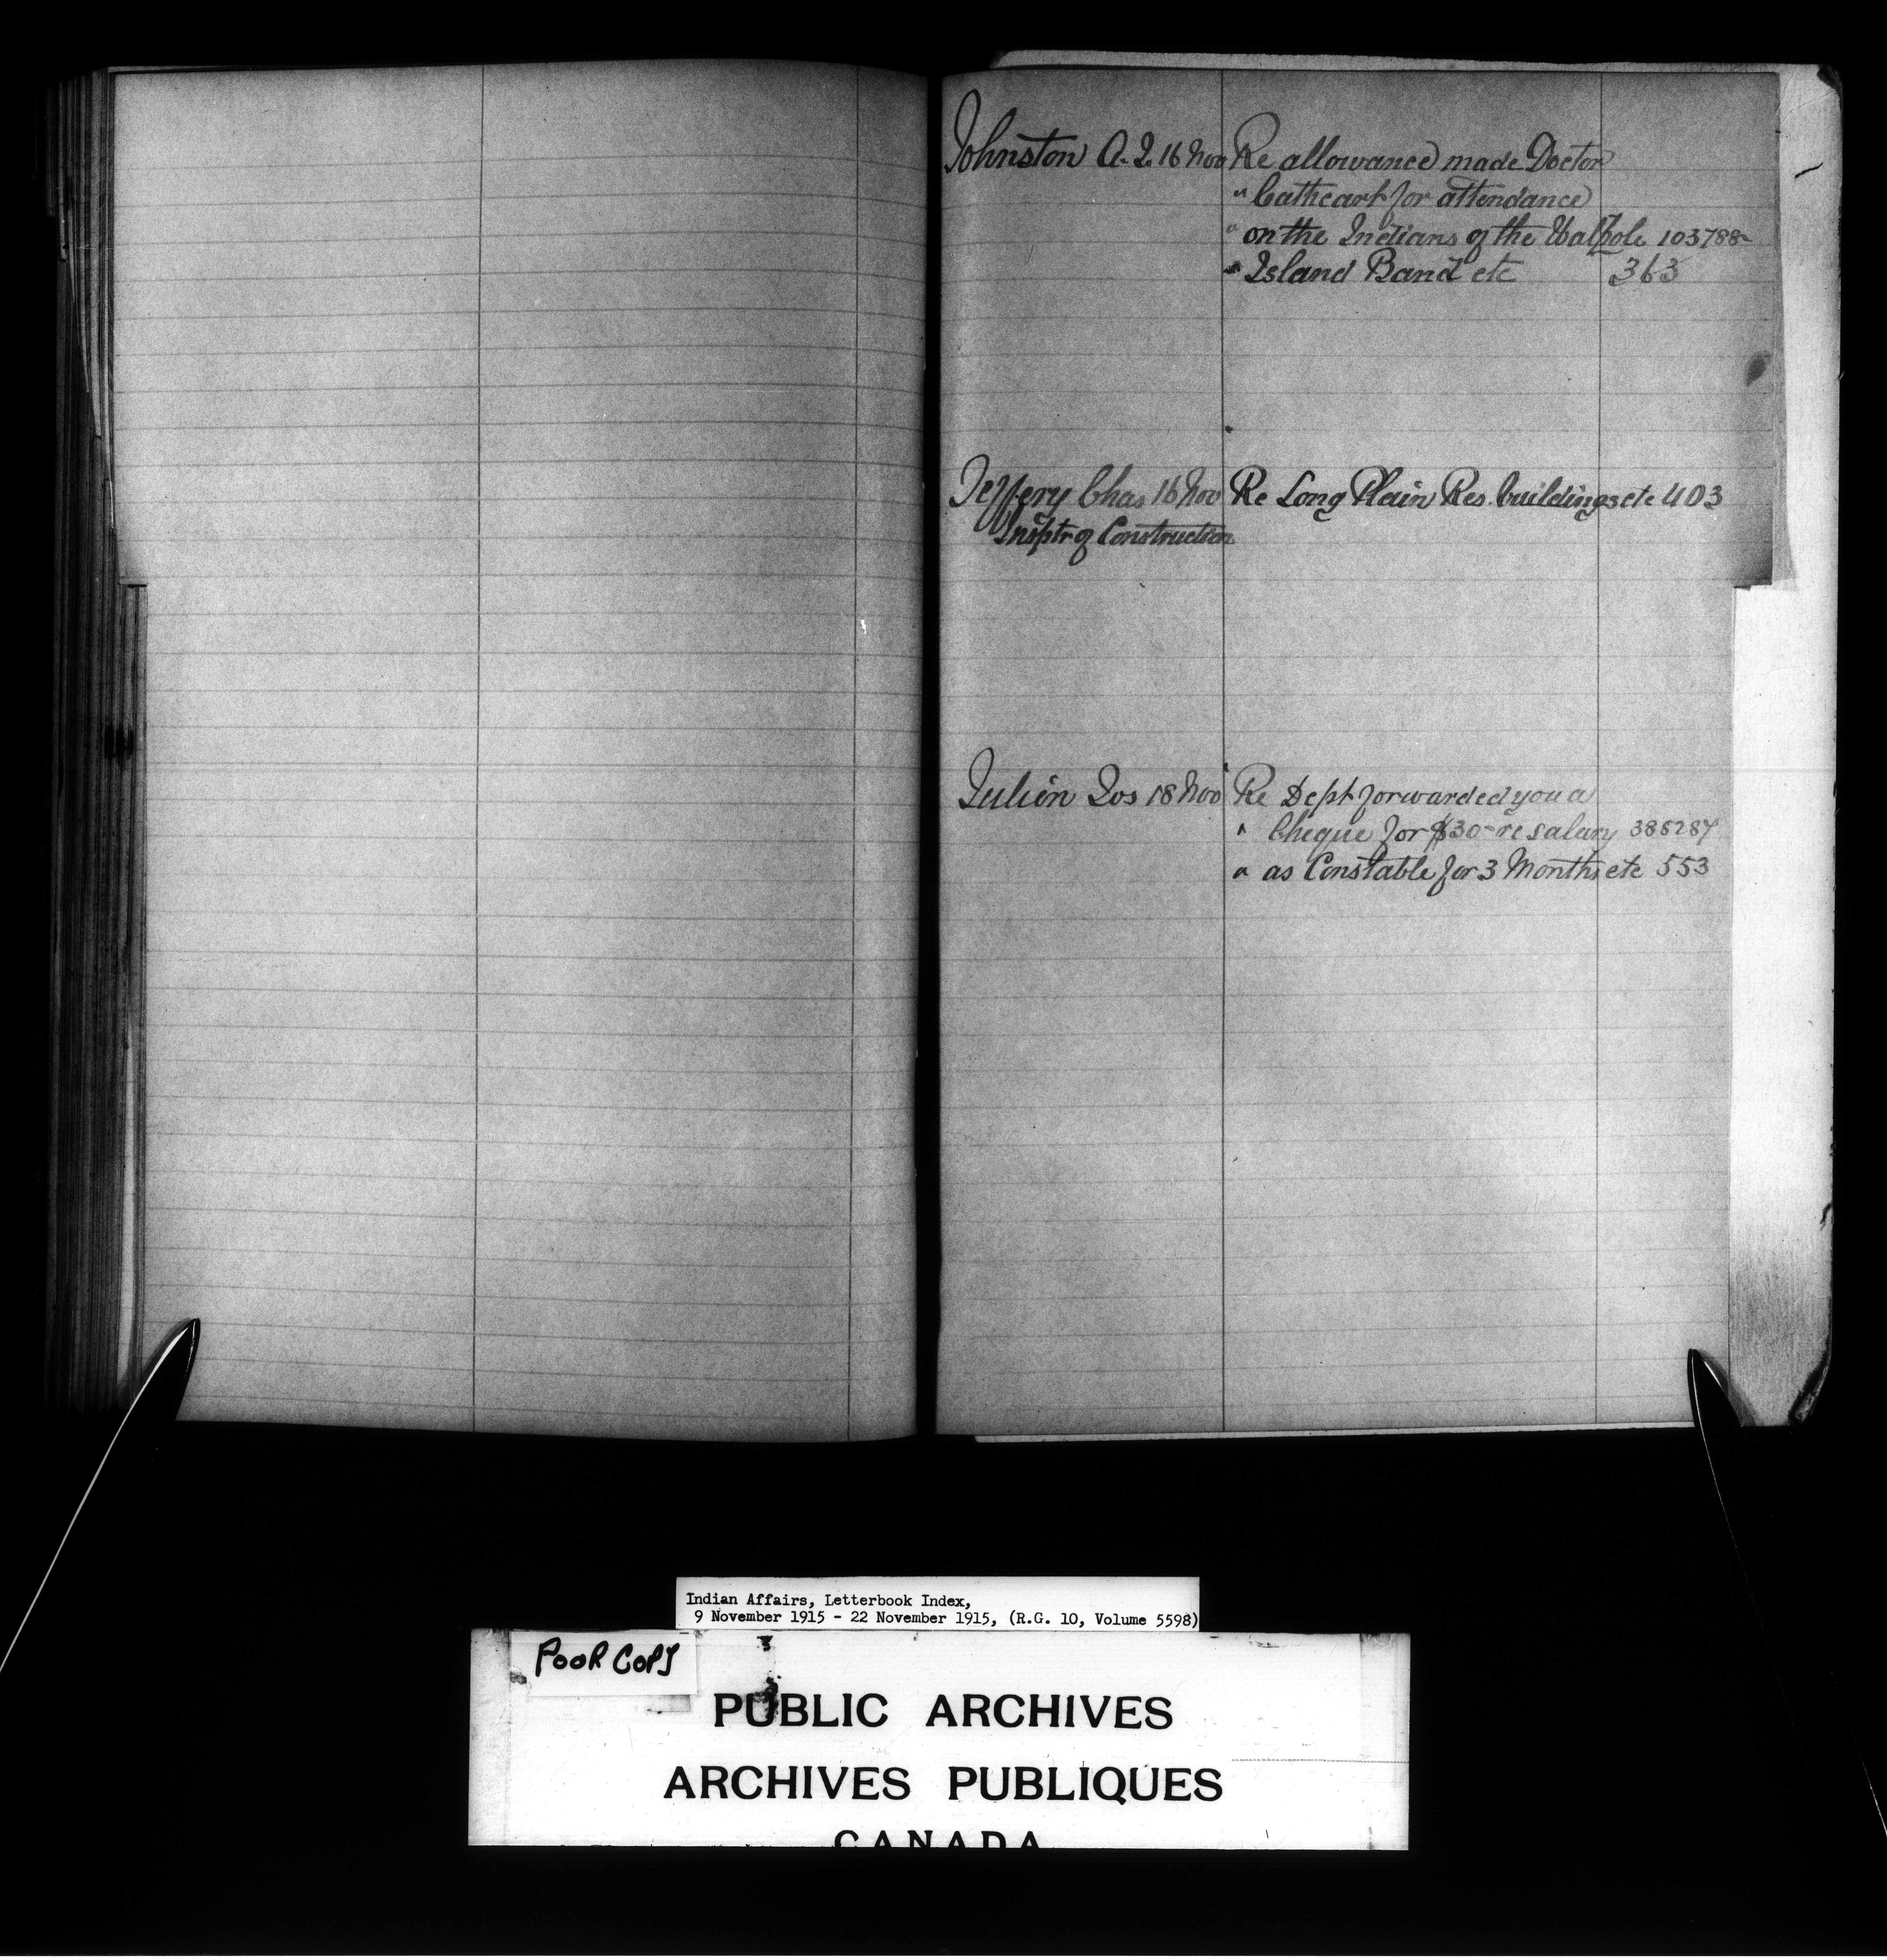 Johnston A. J. 16 Nov Re allowance made Doctor
" Cathcart for attendance
" on the Indians of the Walpole 103788-
" Island Band etc 363
Jeffery Chas 16 Nov Re Long Plain Res. buildings etc 403
Insptr of Construction
Julien Jos 18 Nov Re Dept forwarded you a
" Cheque for $30- re salary 385287
" as Constable for 3 Months etc 553
Indian Affairs, Letterbook Index,
9 November 1915 - 22 November 1915, (R.G. 10, Volume 5598)
POOR COPY
PUBLIC ARCHIVES
ARCHIVES PUBLIQUES
CANADA